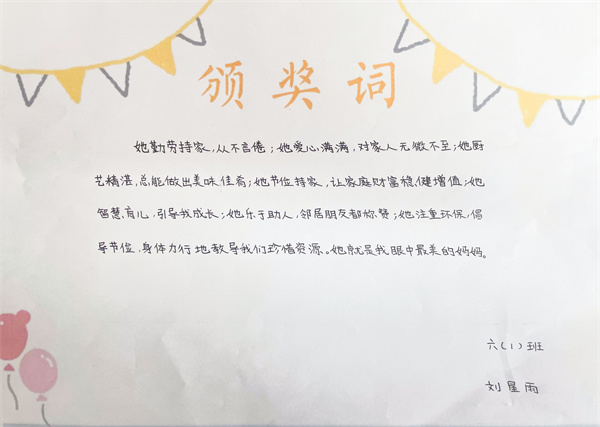 颁奖词
她勤劳持家,从不言倦;她爱心满满,对家人无微不至;她厨
艺精湛,总能做出美味佳肴;她节位持家,让家庭财富稳健增值;她
智慧育儿,引导我成长;她乐于助人,邻居朋友都称赞;她注重环保,倡
导节位,身体力行地教导我们珍惜资源。她就是我眼中最美的妈妈。
六(1)班
刘星雨